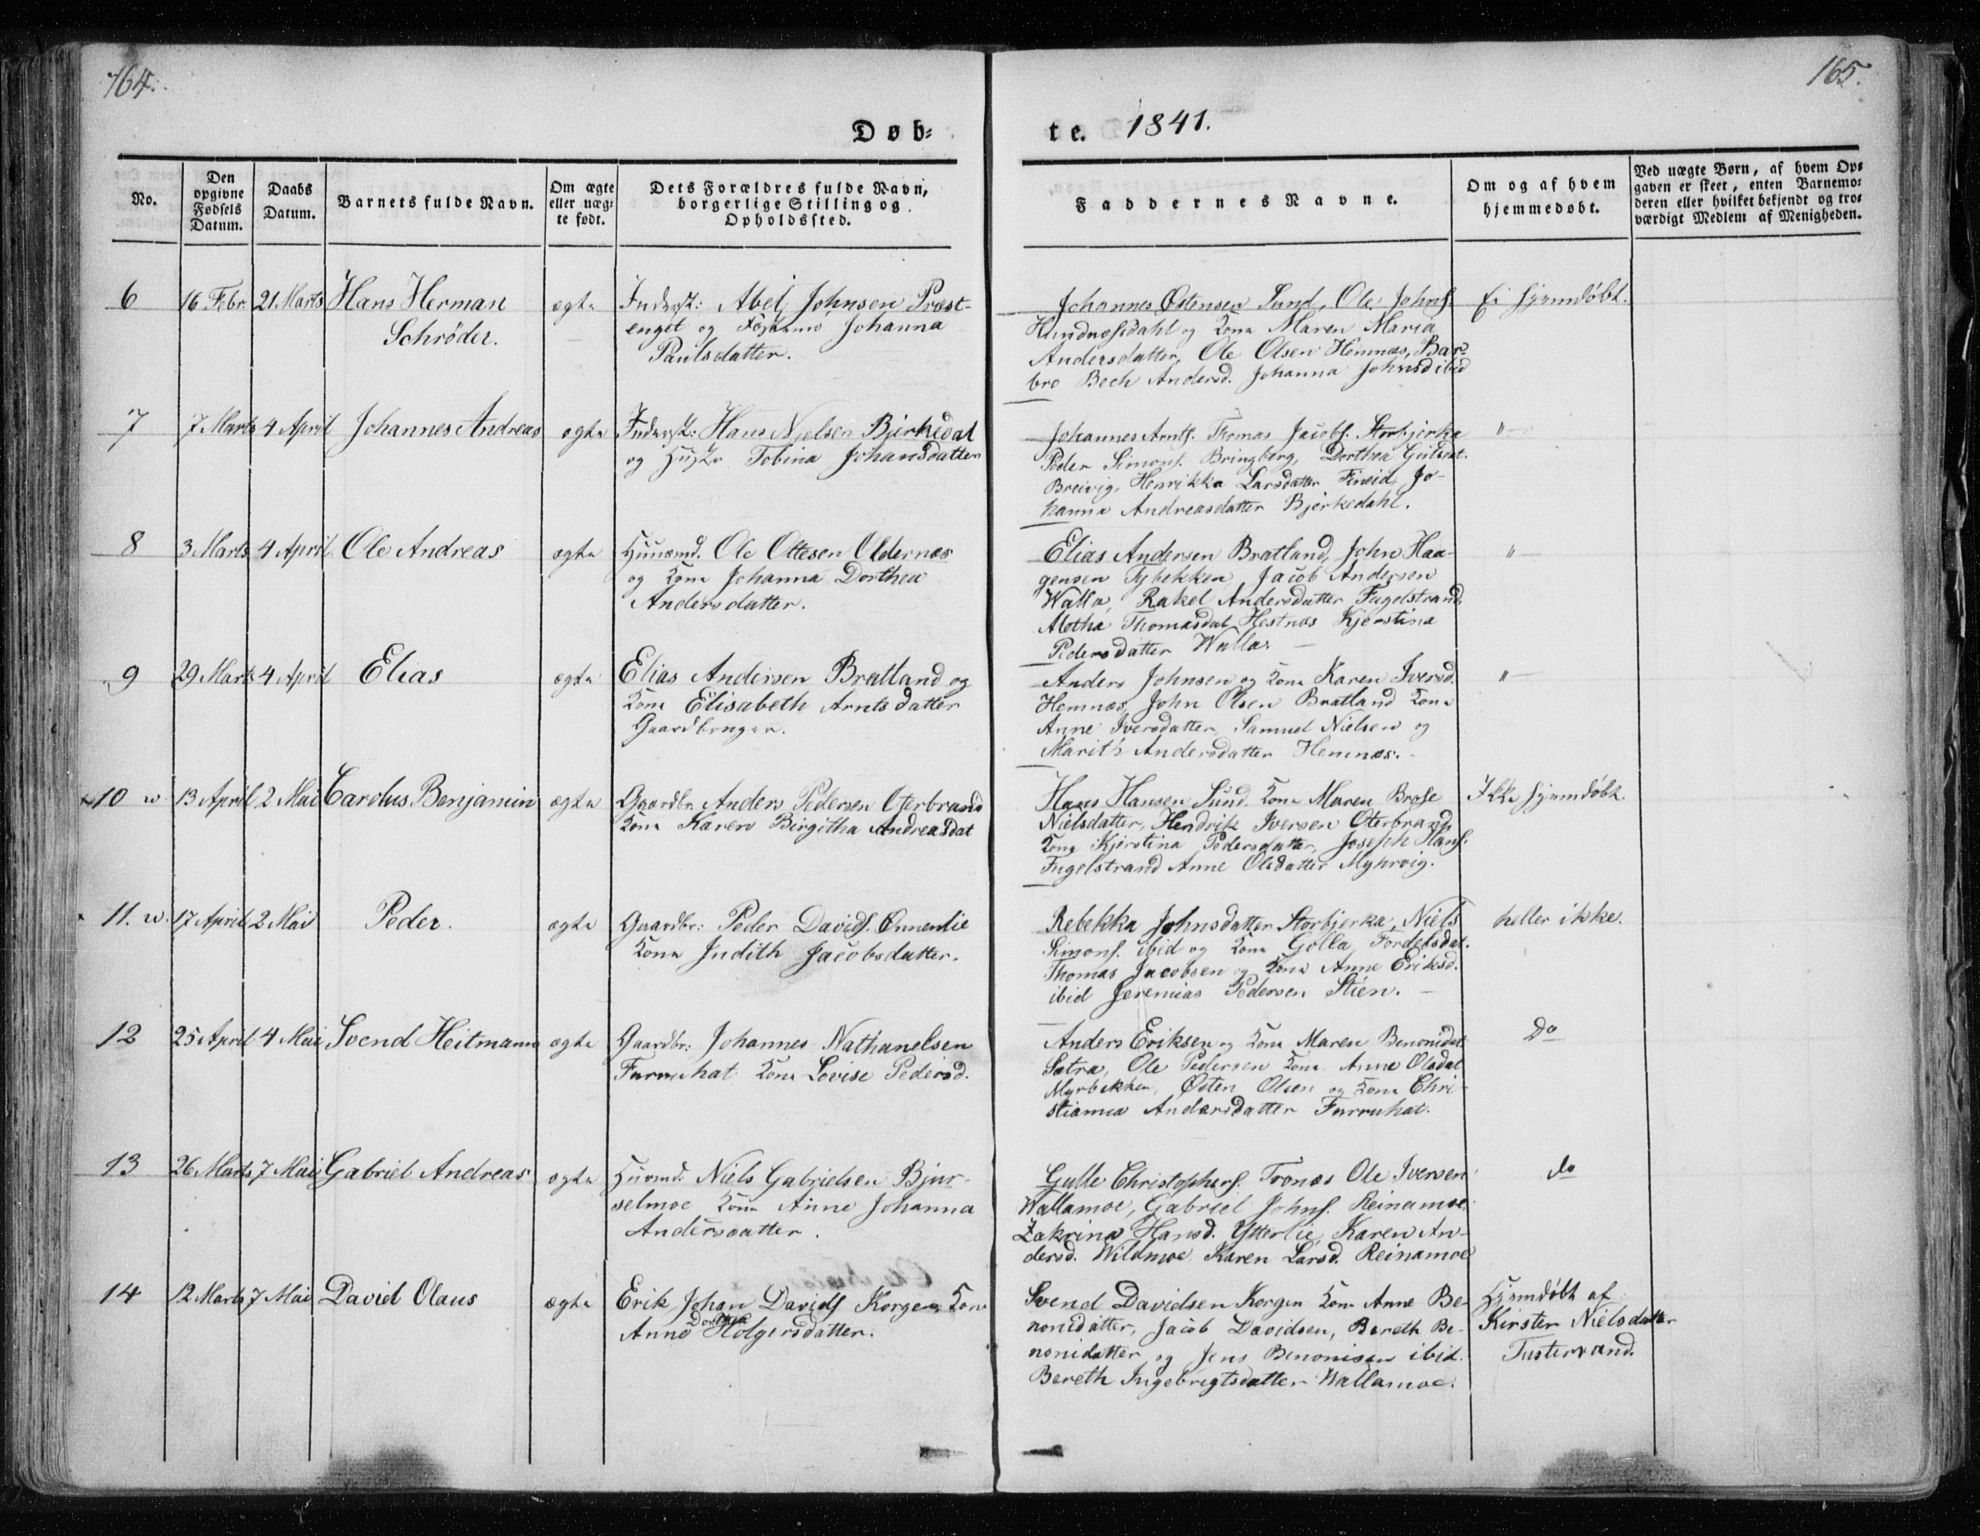 164.
165.
Døb=
te. 1841.
No.
Den opgivne Fødsels Datum.
Daabs Datum.
Barnets fulde Navn.
Om ægte eller uæg-
te født.
Dets Forældres fulde Navn,
borgerlige Stilling og
Opholdssted.
Faddernes Navne.
Om og af hvem
hjemmedøbt.
Ved uægte Børn, af hvem Op-
gaven er skeet, enten Barnemo-
deren eller hvilket bekjendt og tro-
værdigt Medlem af Menigheden.
6 16 Febr. 21 Marts Hans Herman
Schrøder.
ægte
Inderst: Abel Johnsen Præst-
enget og Johanna
Paulsdatter.
Johannes Østensen Sund, Ole Johns.
og Kone Maren Maria
Andersdatter, Ole Olsen Hemnæs, Bar-
bro Bech Andersd. Johanna Johnsd ibid
Ei hjemdøbt.
7 7 Marts 4 April Johannes Andreas ægte
Inderst: Hans Nielsen Bjerkedal
og Hustro Tobina Johansdatter
Johannes Arnts. Thomas Jacobs. Storbjerka
Peder Simons. Bringberg, Dorthea
Breivig, Henrikka Larsdatter Fineid, Jo-
hanna Andreasdatter Bjerkedahl.
"—
8 3 Marts 4 April Ole Andreas ægte
Huusmd. Ole Ottesen Oldernæs
og Kone Johanna Dorthea
Andersdatter.
Elias Andersen Bratland, John Haa-
gensen Tybekken, Jacob Andersen
Walla, Rakel Andersdatter Fugelstrand,
Aletha Thomasdat. Hestnæs Kjerstina
Pedersdatter Walla.
"—
9 29 Marts 4 April Elias ægte
Elias Andersen Bratland og
Kone Elisabeth Arntsdatter
Gaardbruger.
Anders Johnsen og Kone Karen Iversd.
Hemnæs, John Olsen Bratland Kone
Anne Iversdatter, Samuel Nielsen og
Marith Andersdatter Hemnæs.
"—
10 w 13 April 2 Mai Carolus Benjamin ægte
Gaardbr. Anders Pedersen Oterbrand
Kone Karen Birgitha Andreasdat
Hans Hansen Sund. Kone Maren Brose
Nielsdatter, Hendrik Iversen Oterbrand
Kone Kjerstina Pedersdatter, Joseph Hans.
Fugelstrand Anne Olsdatter Myhrvig.
Ikke hjemdøbt.
11. w. 17 April 2 Mai Peder. ægte
Gaardbr: Peder Davids. Onnenlie
Kone Judith Jacobsdatter.
Rebekka Johnsdatter Storbjerka, Niels
Simons. ibid og Kone Golla Fordelsdat.
Thomas Jacobsen og Kone Anne Eriksd.
ibid Jeremias Pedersen Stien.
heller ikke.
12 25 April 4 Mai Svend Heitmann ægte
Gaardbr: Johannes Nathanelsen
Furruhat Kone Lovise Pedersd.
Anders Eriksen og Kone Maren Benonidat
Sætra, Ole Pedersen Kone Anne Olsdat
Myrbekken, Østen Olsen og Kone Chri-
stianna Andersdatter Furruhat.
Do
13 26 Marts 7 Mai Gabriel Andreas ægte
Huusmd. Niels Gabrielsen Bjur-
selmoe Kone Anne Johanna
Andersdatter.
Gulle Christophers. Tronæs Ole Iversen
Wallamoe, Gabriel Johns. Reinamoe
Zakrina Hansd. Ytterlie, Karen An-
dersd. Wildmoe Karen Larsd. Reinamoe
do
14 12 Marts 7 Mai David Olaus ægte
Erik Johan Davids Korgen Kone
Anne Dorthea Holgersdatter.
Svend Davidsen Korgen Kone Anne Be-
nonidatter, Jacob Davidsen, Bereth Be-
nonidatter og Jens Benonisen ibid.
Bereth Ingebrigtsdatter Wallamoe.
Hjemdøbt af
Kirsten Nielsdatter
Tustervand.